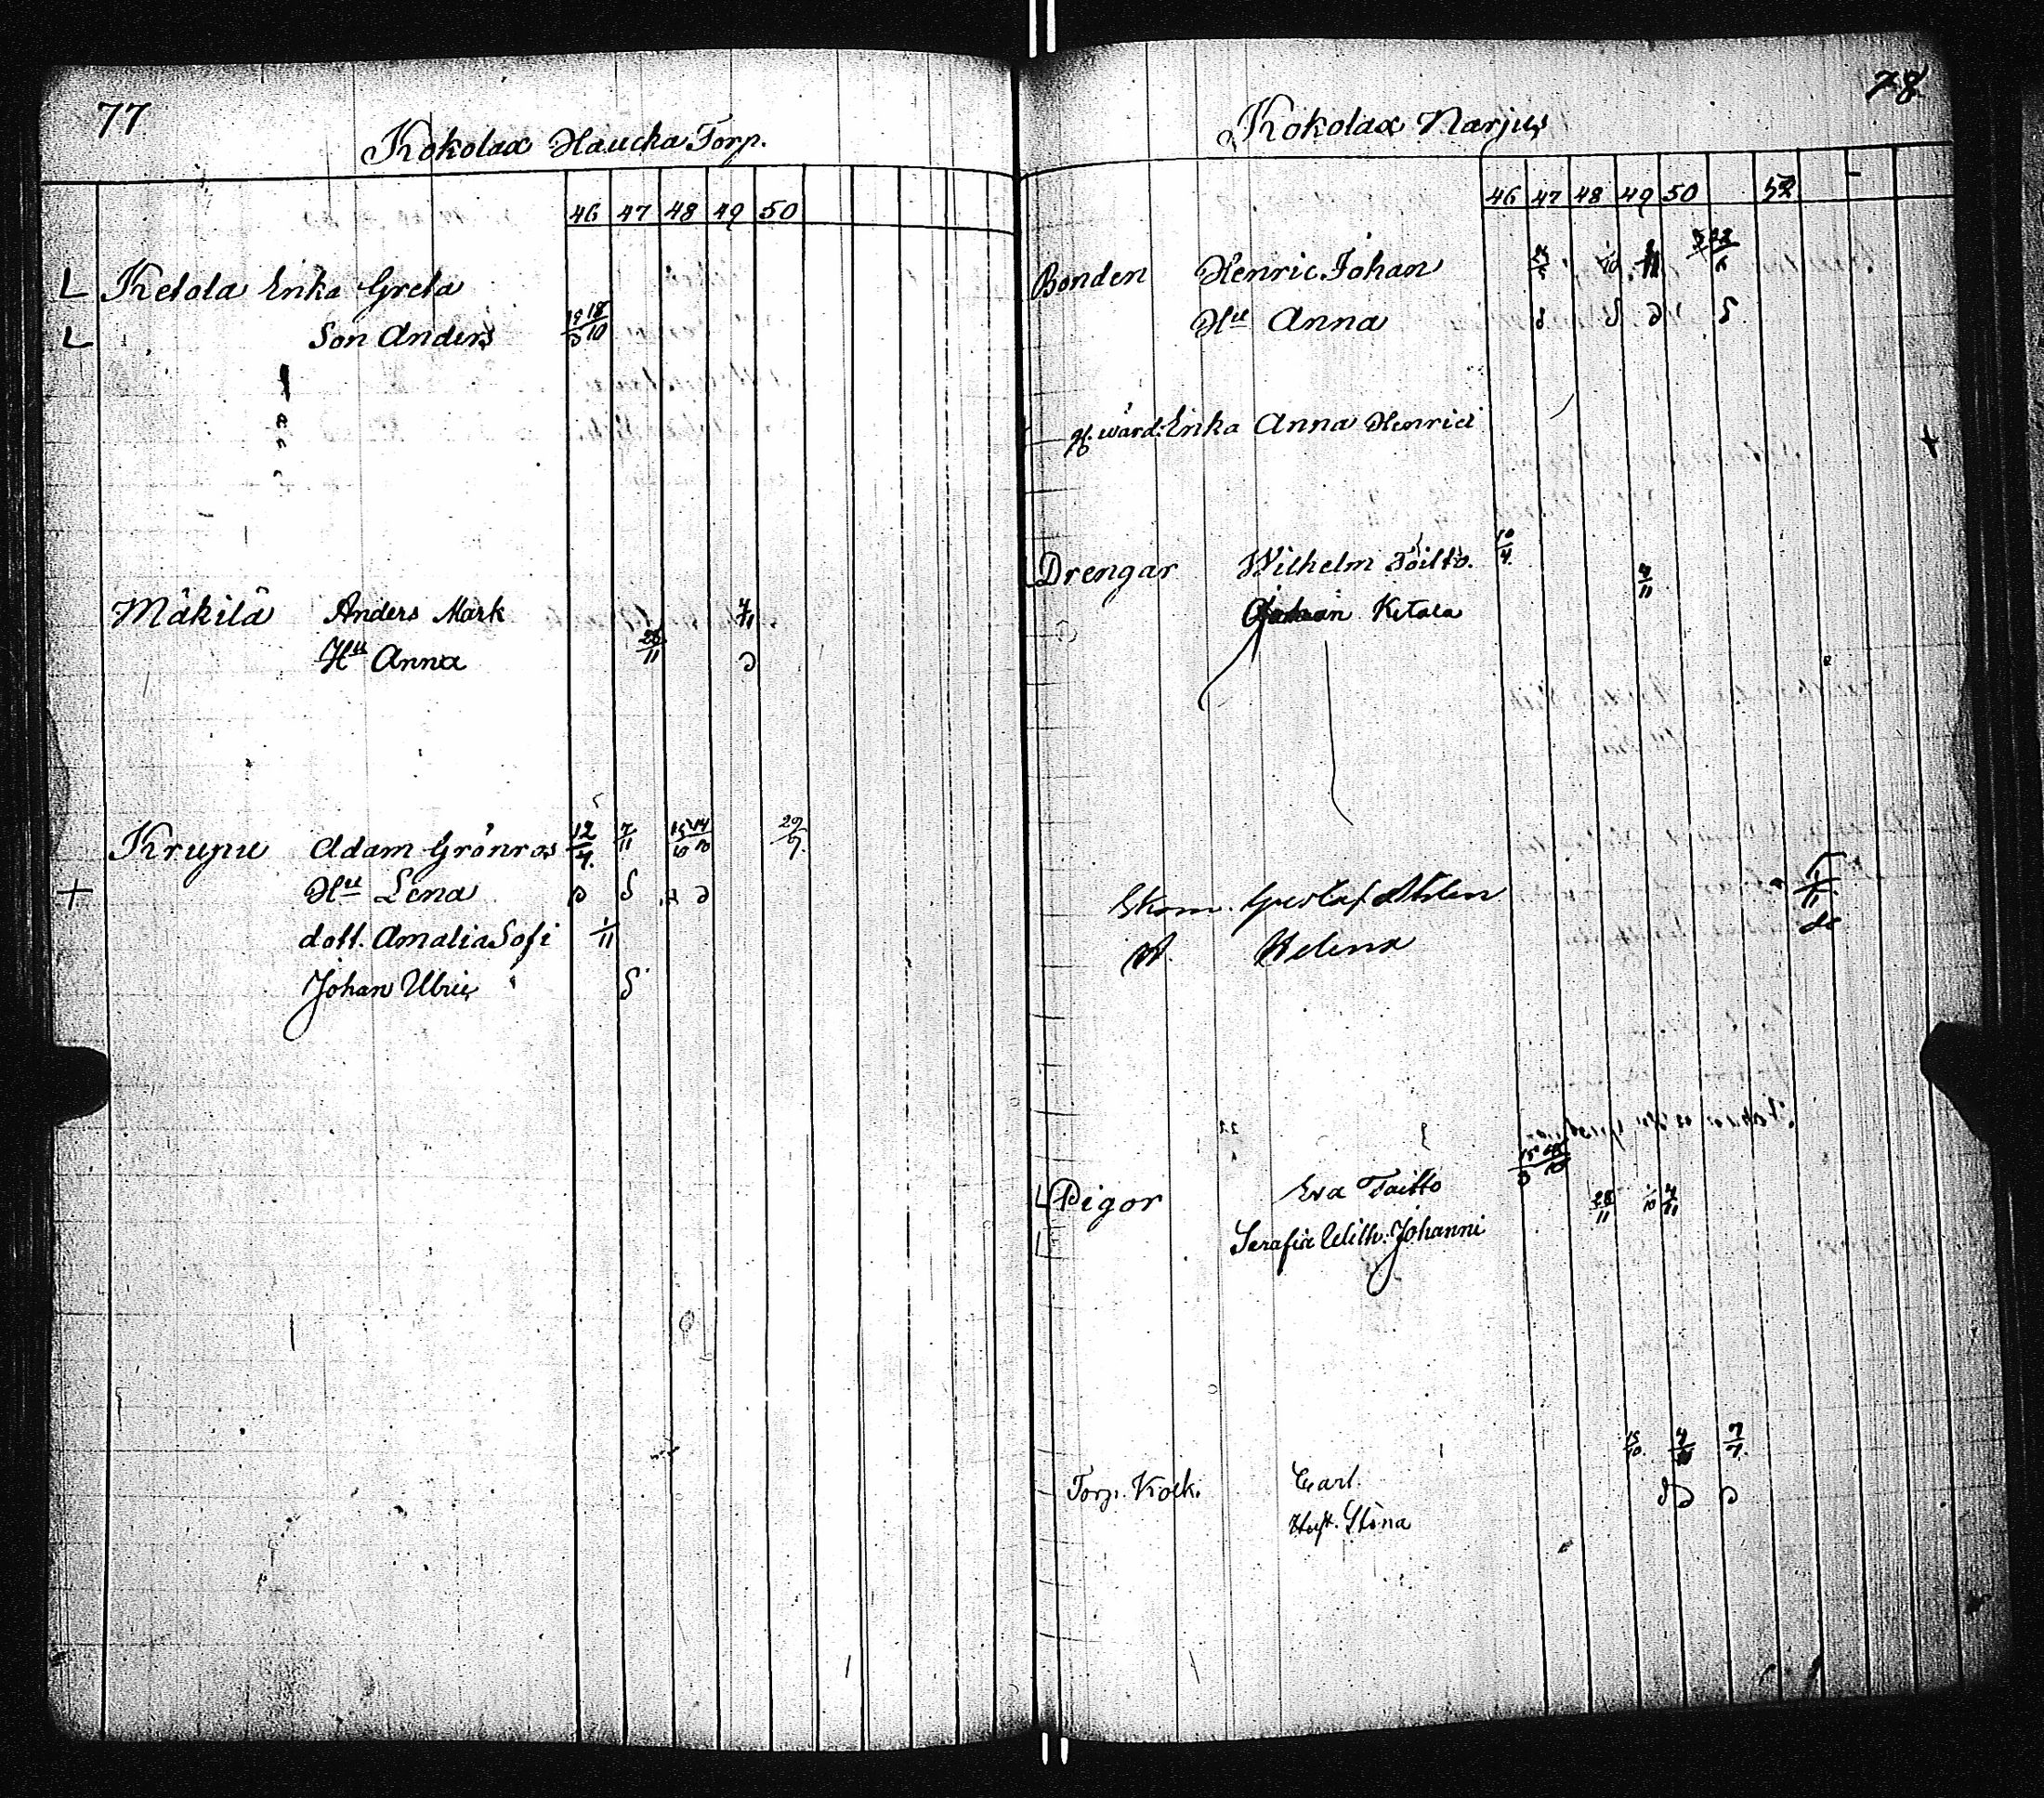 77
Kokolax Haucka Torp.
46 47 48 49 50
L Ketola Erika Greta
L Son Anders 18/10
Mäkilä Anders Mark 4/11
Hu Anna 28/11 d
Krupu Adam Grönros 12/4. 7/11 15/10 14/10 29/9.
+ Hu Lena d d d
dott. Amalia Sofi 1/11
Johan Ulric d
78.
Kokolax Narjus
46 47 48 49 50 52
Bonden Henric Johan
Hu Anna d d d d
H. wärd: Erika Anna Henrici +
Drengar Wilhelm 10/4.
Johan Ketala 4/11
Gustaf
Helena
L Pigor Eva Taitto 28/11 4/11
L Serafia Wilh. Johanni
Torp. Kolk. Carl. 15/10. 7/7.
Hust. Stina d d d